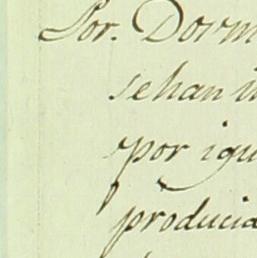 Por. Dorm
sehan in
por igu
producia